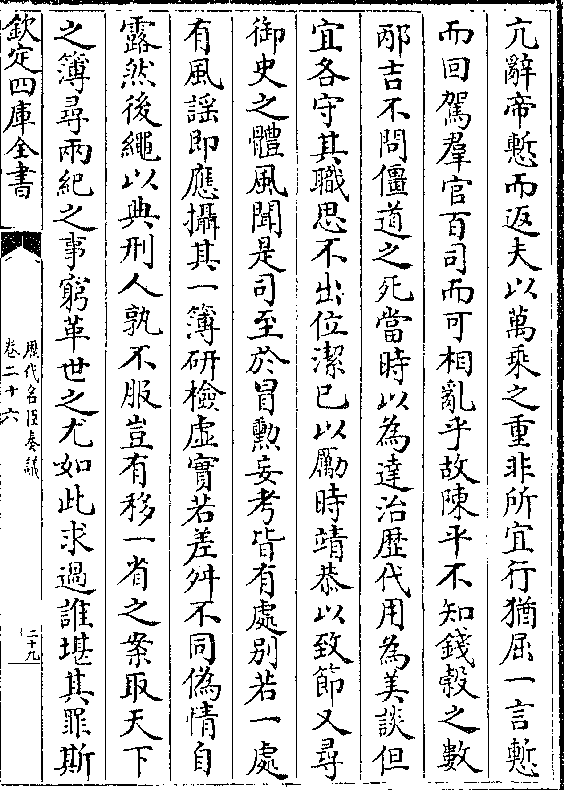 亢辭帝慙而返夫以萬乘之重非所宜行猶屈一言慙
而回駕羣官百司而可相亂乎故陳平不知錢穀之數
邴吉不問僵道之死當時以為達治歴代用為美談但
宜各守其職思不出位潔己以勵時靖恭以致節又尋
御史之體風聞是司至於冒勲妄考皆有處别若一處
有風謡即應攝其一簿研檢虚實若差舛不同偽情自
露然後繩以典刑人孰不服豈有移一省之案取天下
之簿尋兩紀之事窮革世之尤如此求過誰堪其罪斯
欽定四庫全書
歴代名臣奏議
卷二十六
二十九